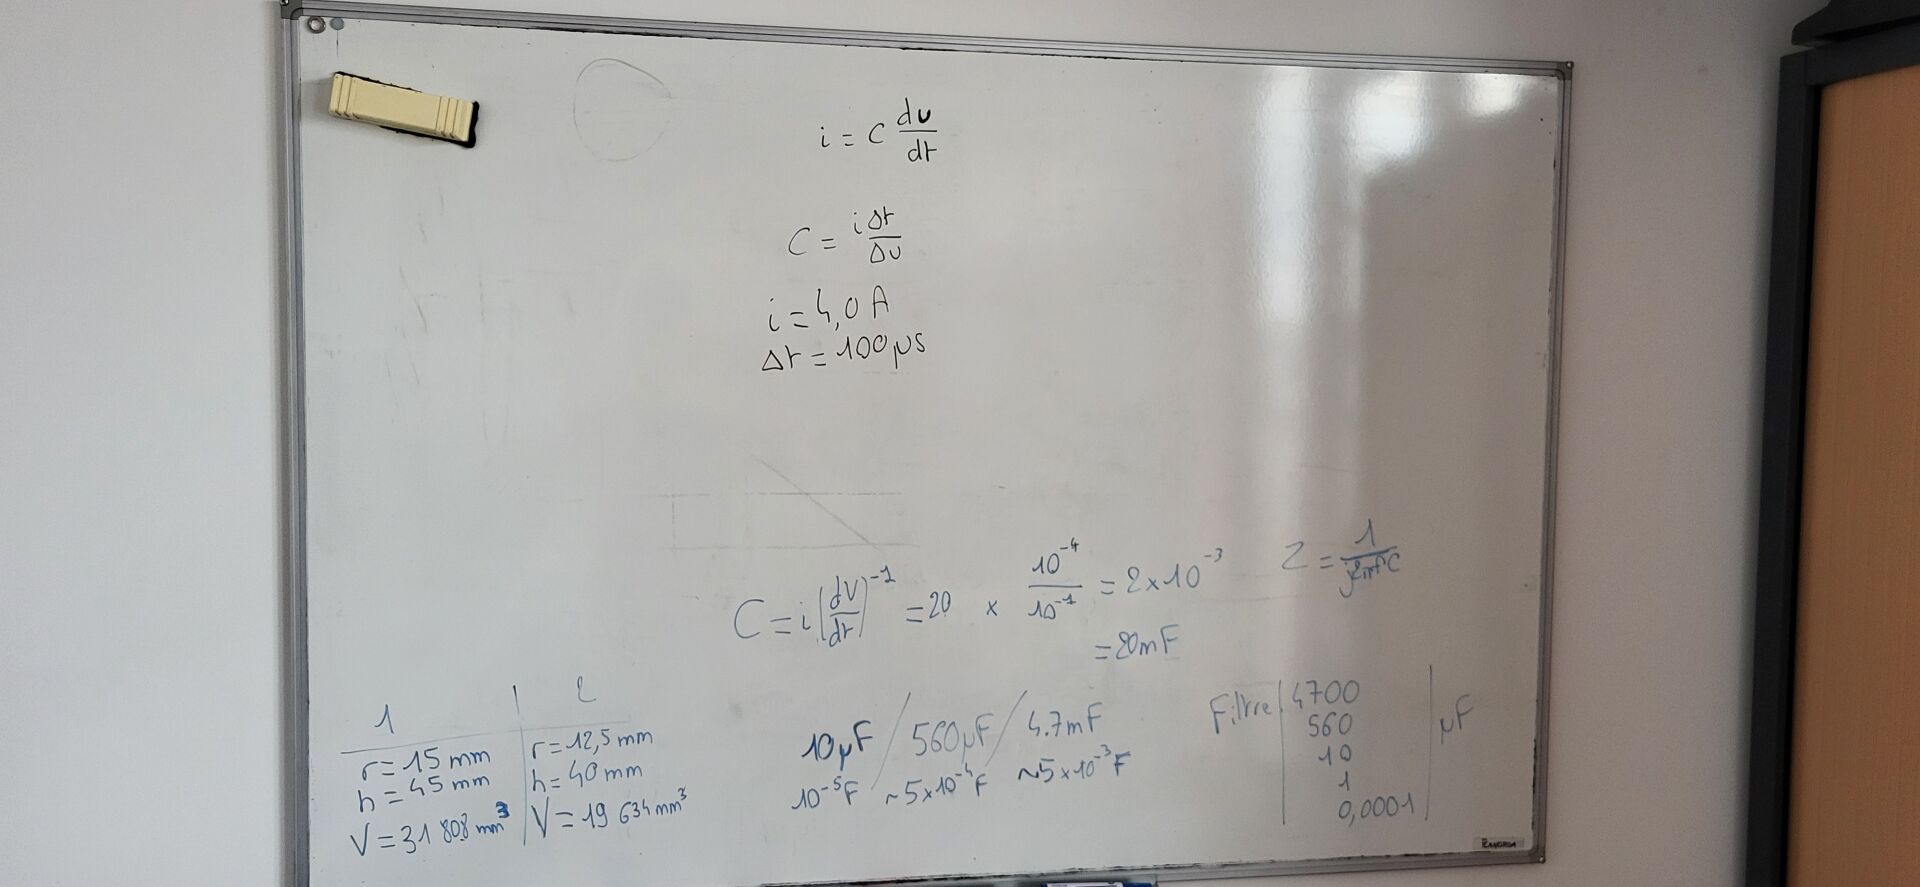 i = C du/dt
C = iΔt/Δu
i = 4,0 A
Δt = 100 µs
C = i (dV/dt)⁻¹ = 20 × 10⁻⁴/10⁻¹ = 2 × 10⁻³
= 20 mF
Z = 1/j2πfC
1 | 2
r = 15 mm | r = 12,5 mm
h = 45 mm | h = 40 mm
V = 31 808 mm³ | V = 19 634 mm³
10 µF / 560 µF / 4.7 mF
10⁻⁵ F ~5 × 10⁻⁴ F ~5 × 10⁻³ F
Filtre | 4700
560 | µF
10
1
0,0001